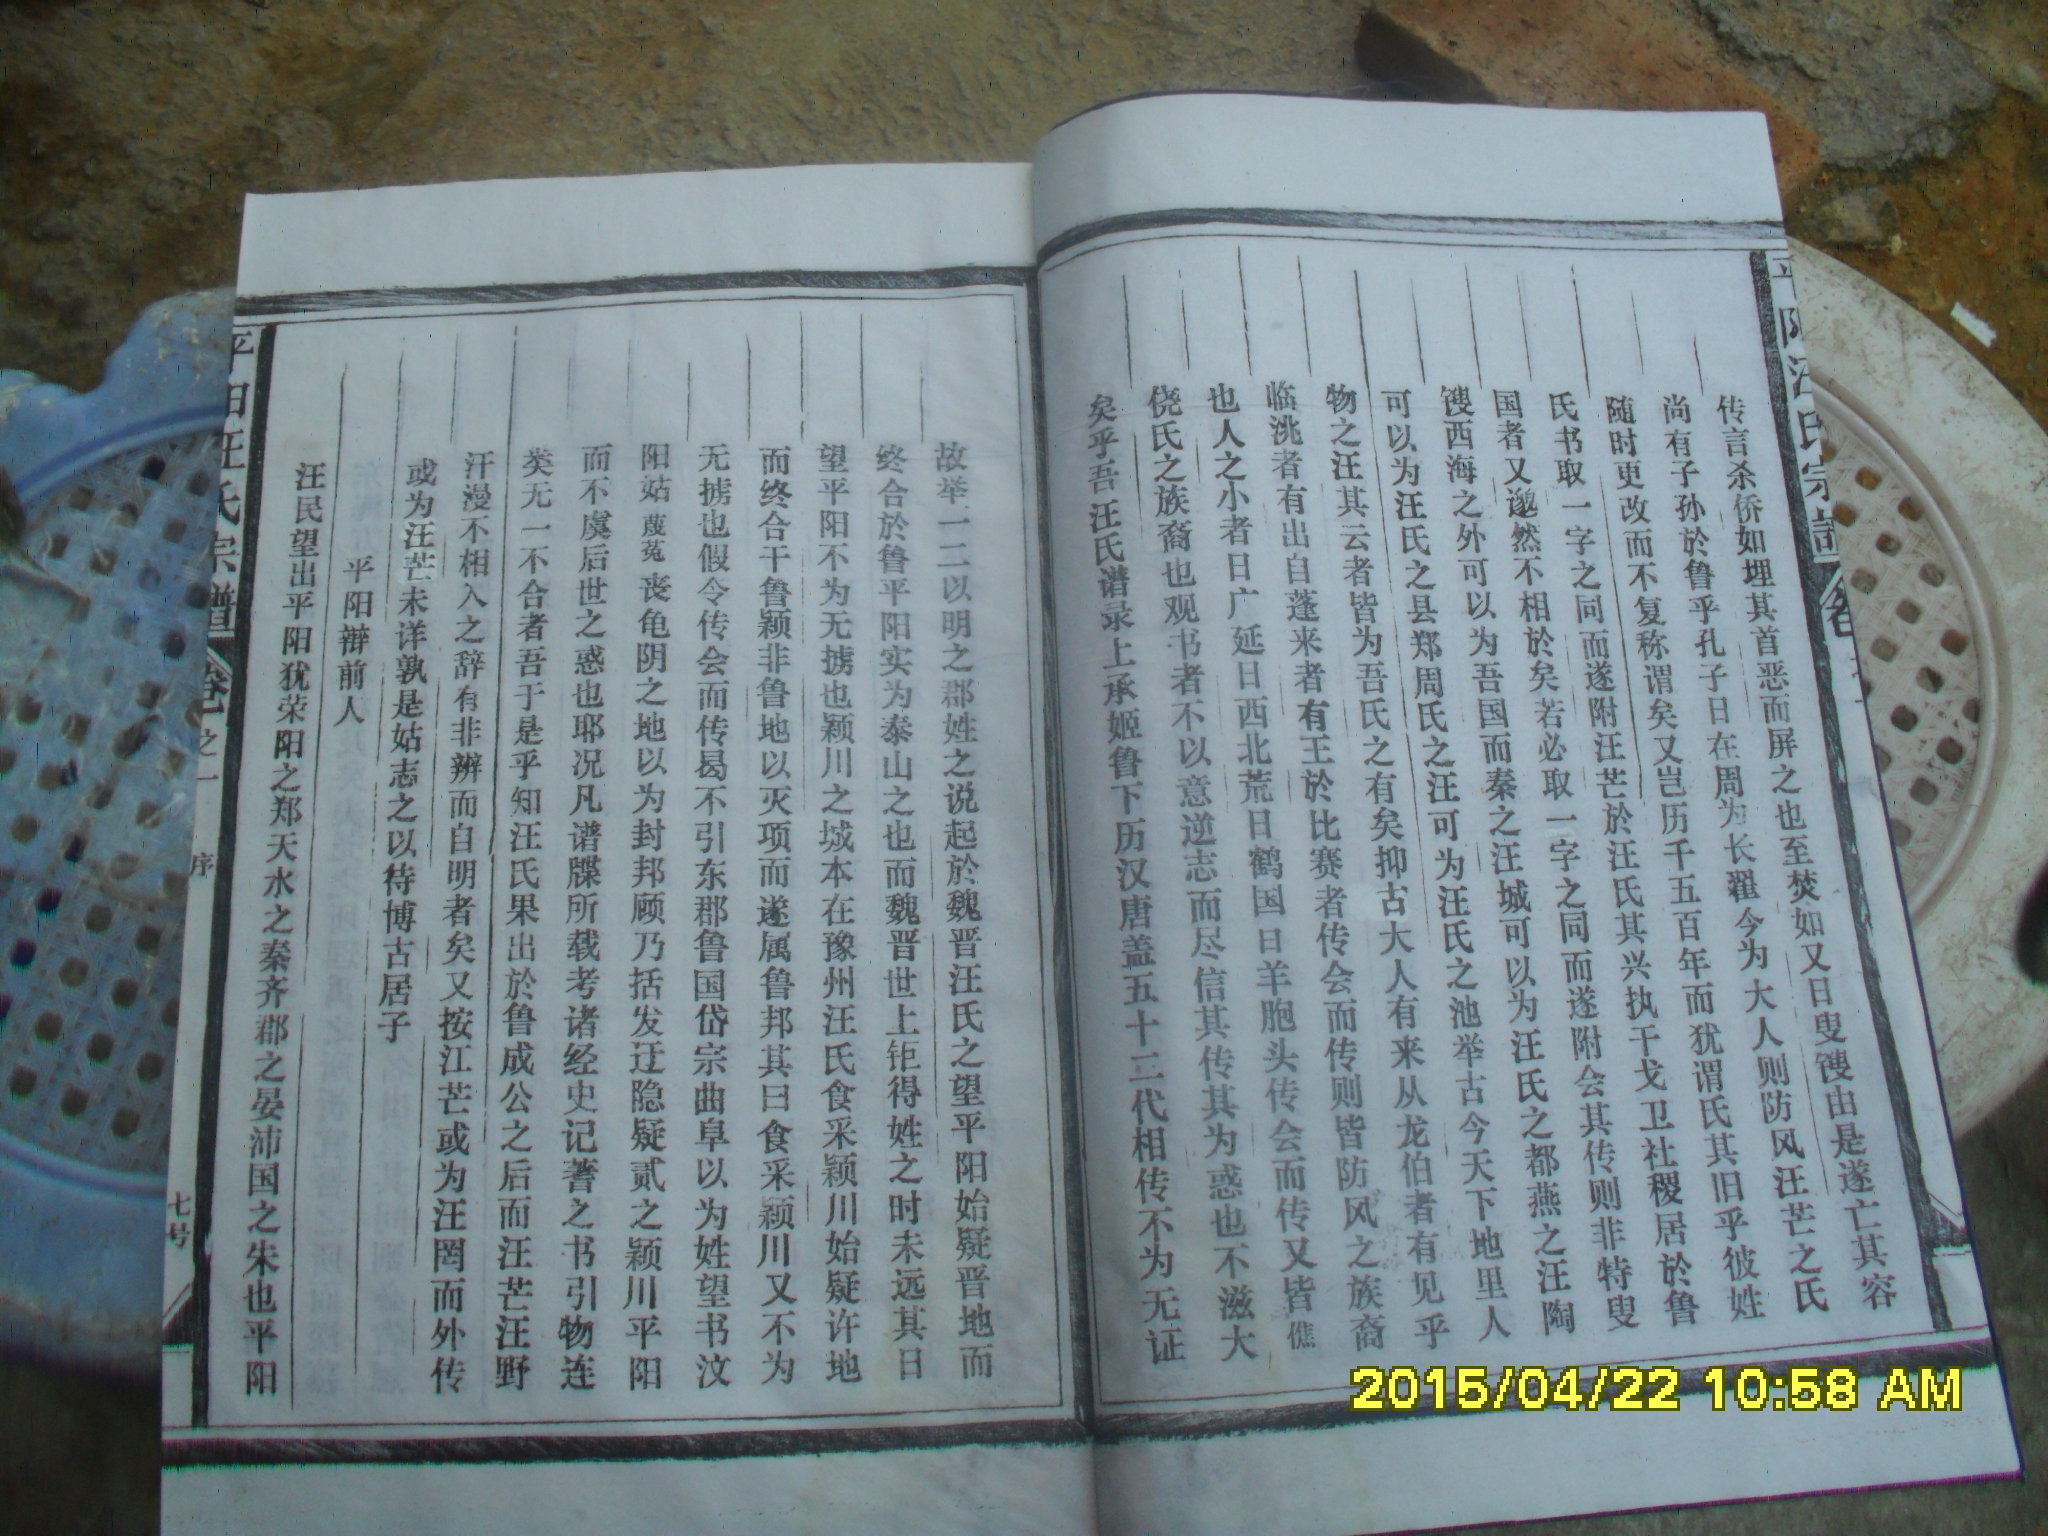 传言杀侨如埋其首恶而屏之也至焚如又日叟䐽由是遂亡其容
尚有子孙於鲁乎孔子日在周为长翟今为大人则防风汪芒之氏
随时更改而不复称谓矣又岂历千五百年而犹谓氏其旧乎彼姓
氏书取一字之同而遂附汪芒於汪氏其兴执干戈卫社稷居於鲁
国者又邈然不相於矣若必取一字之同而遂附会其传则非特叟
䐽西海之外可以为吾国而秦之汪城可以为汪氏之都燕之汪陶
可以为汪氏之县郑周氏之汪可为汪氏之池举古今天下地里人
物之汪其云者皆为吾氏之有矣抑古大人有来从龙伯者有见乎
临洮者有出自蓬来者有王於比赛者传会而传则皆防风之族裔
也人之小者日广延日西北荒日鹤国日羊胞头传会而传又皆僬
侥氏之族裔也观书者不以意逆志而尽信其传其为惑也不滋大
矣乎吾汪氏谱录上承姬鲁下历汉唐盖五十二代相传不为无证
故举一二以明之郡姓之说起於魏晋汪氏之望平阳始疑晋地而
终合於鲁平阳实为泰山之也而魏晋世上钜得姓之时未远其日
望平阳不为无掳也颖川之城本在豫州汪氏食采颖川始疑许地
而终合干鲁颖非鲁地以灭项而遂属鲁邦其曰食采颖川又不为
无掳也假令传会而传曷不引东郡鲁国岱宗曲阜以为姓望书汶
阳姑蔑菟丧龟阴之地以为封邦顾乃括发迂隐疑贰之颖川平阳
而不虞后世之惑也耶况凡谱牒所载考诸经史记蓍之书引物连
类无一不合者吾于是乎知汪氏果出於鲁成公之后而汪芒汪野
汗漫不相入之辞有非辨而自明者矣又按江芒或为汪罔而外传
或为汪芒未详孰是姑志之以待博古居子
平阳辩前人
汪民望出平阳犹荣阳之郑天水之秦齐郡之晏沛国之朱也平阳
平阳汪氏宗谱
卷之一
序
七号
2015/04/22 10:58 AM